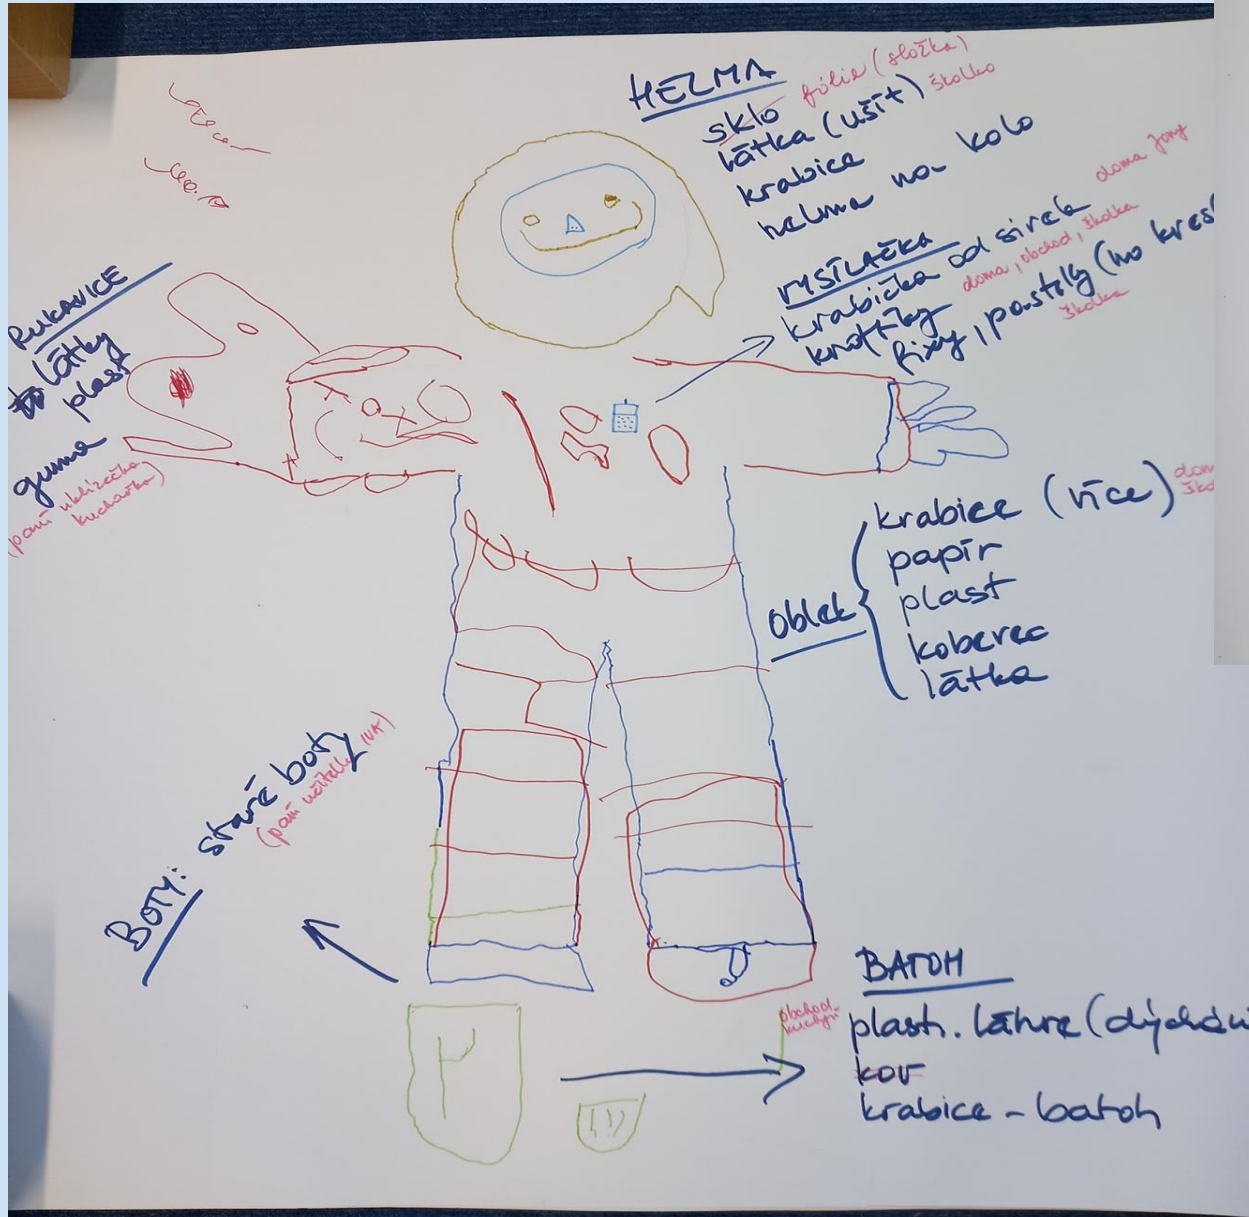 HELMA
sklo fólie (složka)
látka (ušít) školka
krabice
helma na kolo
VYSÍLAČKA
krabička od sirek doma
knoflíky doma, obchod, školka
fixy, pastely (na kres
školka
RUKAVICE
látky
plast
guma
(paní uklízečka
kuchařka)
oblek
krabice (více)
papír
plast
koberec
látka
BOTY: staré boty
(paní učitelky IVA)
BATOH
obchod
kuchyň
plast. láhve (dýchání
kov
krabice - batoh